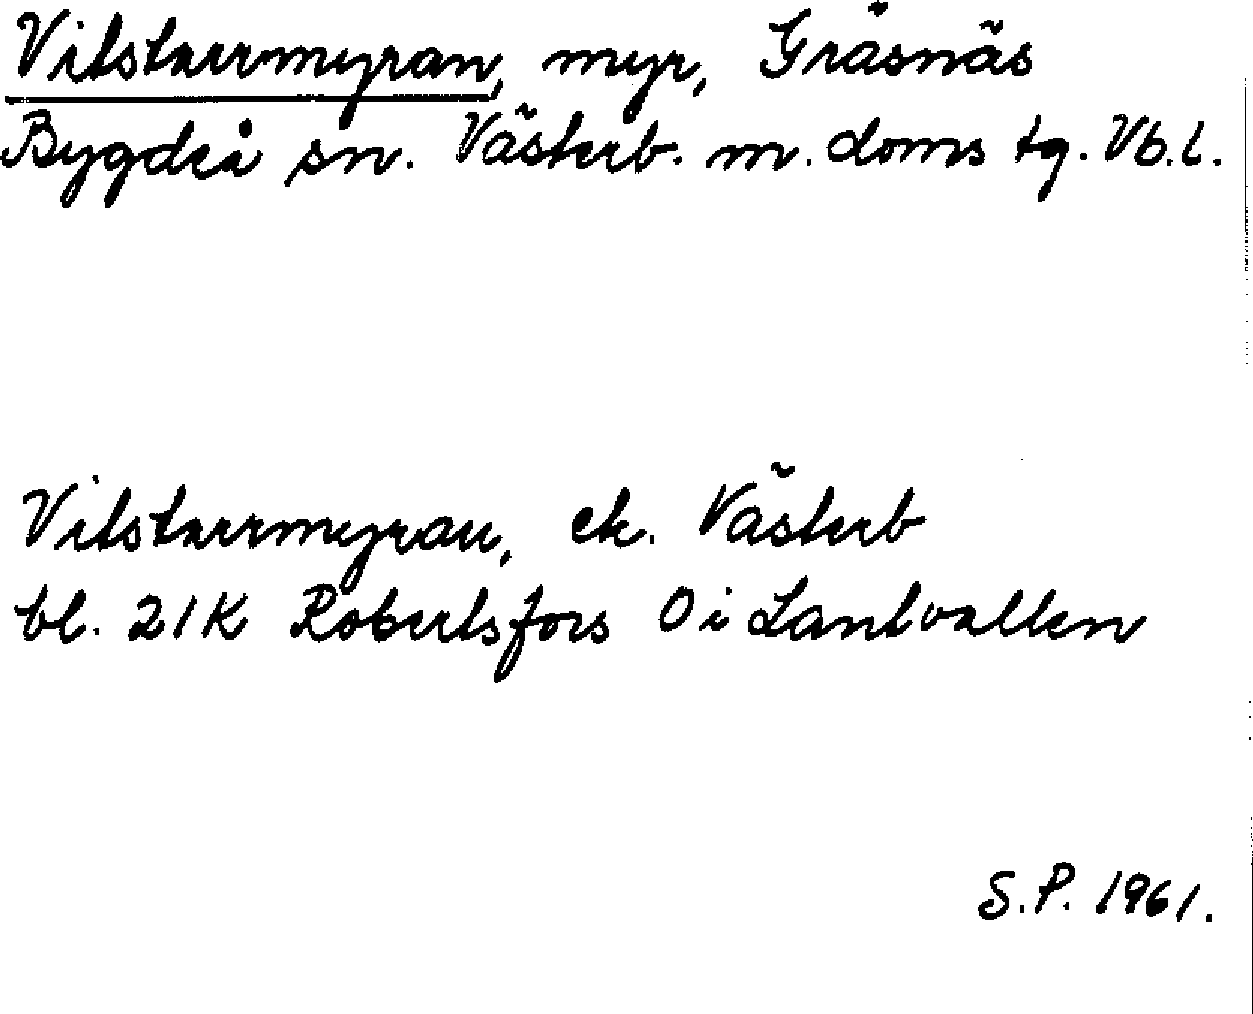 Vitstarrmyran, myr, Gräsnäs
Bygdeå sn. Västerb. m. doms tg. Vb.l.
Vitstarrmyran, ek. Västerb
bl. 21K Robertsfors O i Lantvallen
S.P. 1961.